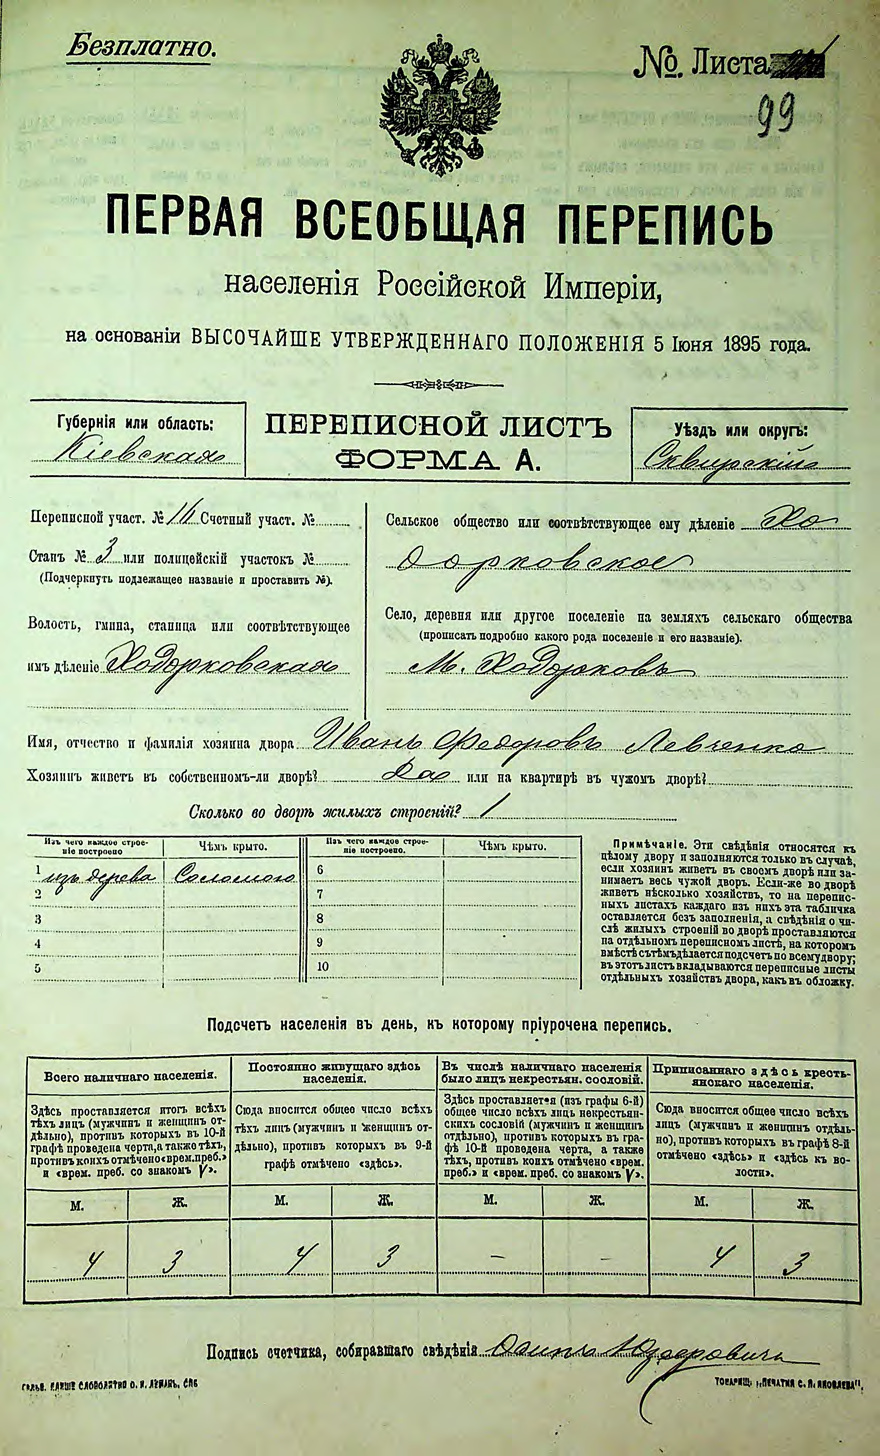 Безплатно.
№. Листа
99
ПЕРВАЯ ВСЕОБЩАЯ ПЕРЕПИСЬ
населенія Россійской Имперіи,
на основаніи ВЫСОЧАЙШЕ УТВЕРЖДЕННАГО ПОЛОЖЕНІЯ 5 Іюня 1895 года.
Губернія или область:
Кіевская
ПЕРЕПИСНОЙ ЛИСТЪ
ФОРМА А.
Уѣздъ или округъ:
Сквирскій
Переписной участ. № 16 Счетный участ. №
Станъ № 3 или полицейскій участокъ №
(Подчеркнуть подлежащее названіе и проставить №).
Волость, гмина, станица или соотвѣтствующее
имъ дѣленіе Ходорковская
Сельское общество или соотвѣтствующее ему дѣленіе Хо
дорковское
Село, деревня или другое поселеніе на земляхъ сельскаго общества
(прописать подробно какого рода поселеніе и его названіе).
М. Ходорковъ
Имя, отчество и фамилія хозяина двора Иванъ Федоровъ Левченко
Хозяинъ живетъ въ собственномъ-ли дворѣ? Да или на квартирѣ въ чужомъ дворѣ?
Сколько во дворѣ жилыхъ строеній? 1
Изъ чего каждое строеніе построено
Чѣмъ крыто.
1 изъ дерева Соломою
2
3
4
5
Изъ чего каждое строеніе построено.
Чѣмъ крыто.
6
7
8
9
10
Примѣчаніе. Эти свѣдѣнія относятся къ
цѣлому двору и заполняются только въ случаѣ,
если хозяинъ живетъ въ своемъ дворѣ или за-
нимаетъ весь чужой дворъ. Если-же во дворѣ
живетъ нѣсколько хозяйствъ, то на перепис-
ныхъ листахъ каждаго изъ нихъ эта табличка
оставляется безъ заполненія, а свѣдѣнія о чи-
слѣ жилыхъ строеній во дворѣ проставляются
на отдѣльномъ переписномъ листѣ, на которомъ
вмѣстѣ съ тѣмъ дѣлается подсчетъ по всему двору;
въ этотъ листъ вкладываются переписные листы
отдѣльныхъ хозяйствъ двора, какъ въ обложку.
Подсчетъ населенія въ день, къ которому пріурочена перепись.
Всего наличнаго населенія.
Здѣсь проставляется итогъ всѣхъ
тѣхъ лицъ (мужчинъ и женщинъ от-
дѣльно), противъ которыхъ въ 10-й
графѣ проведена черта, а также тѣхъ,
противъ коихъ отмѣчено «врем. преб.»
и «врем. преб. со знакомъ V».
Постоянно живущаго здѣсь
населенія.
Сюда вносится общее число всѣхъ
тѣхъ лицъ (мужчинъ и женщинъ от-
дѣльно), противъ которыхъ въ 9-й
графѣ отмѣчено «здѣсь».
Въ числѣ наличнаго населенія
было лицъ некрестьян. сословій.
Здѣсь проставляется (изъ графы 6-й)
общее число всѣхъ лицъ некрестьян-
скихъ сословій (мужчинъ и женщинъ
отдѣльно), противъ которыхъ въ гра-
фѣ 10-й проведена черта, а также
тѣхъ, противъ коихъ отмѣчено «врем.
преб.» и «врем. преб. со знакомъ V».
Приписаннаго здѣсь кресть-
янскаго населенія.
Сюда вносится общее число всѣхъ
лицъ (мужчинъ и женщинъ отдѣль-
но), противъ которыхъ въ графѣ 8-й
отмѣчено «здѣсь» и «здѣсь къ во-
лости».
М. Ж. М. Ж. М. Ж. М. Ж.
4 3 4 3 – – 4 3
Подпись счетчика, собиравшаго свѣдѣнія
ТОВАРИЩ. „ПЕЧАТНЯ С. П. ЯКОВЛЕВА“.